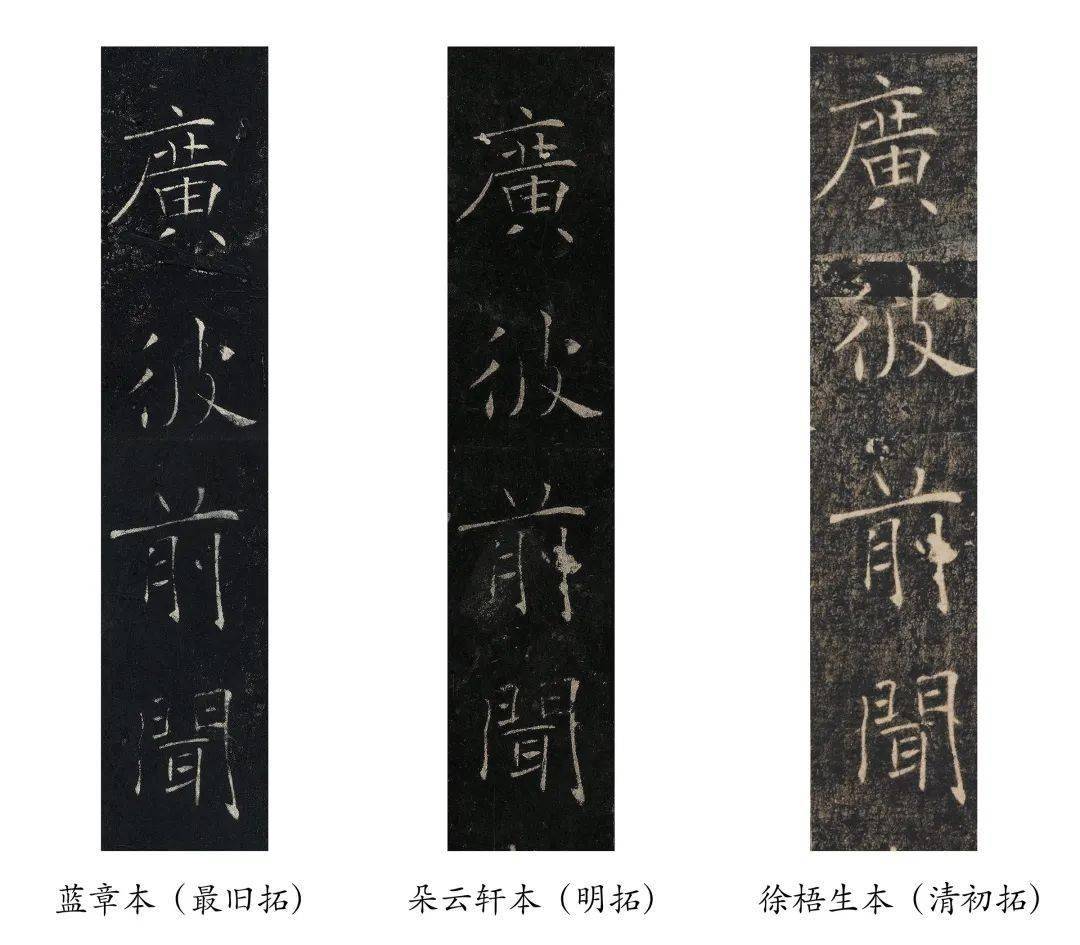 廣彼前聞
廣彼前聞
廣彼前聞
蓝章本（最旧拓） 朵云轩本（明拓） 徐梧生本（清初拓）